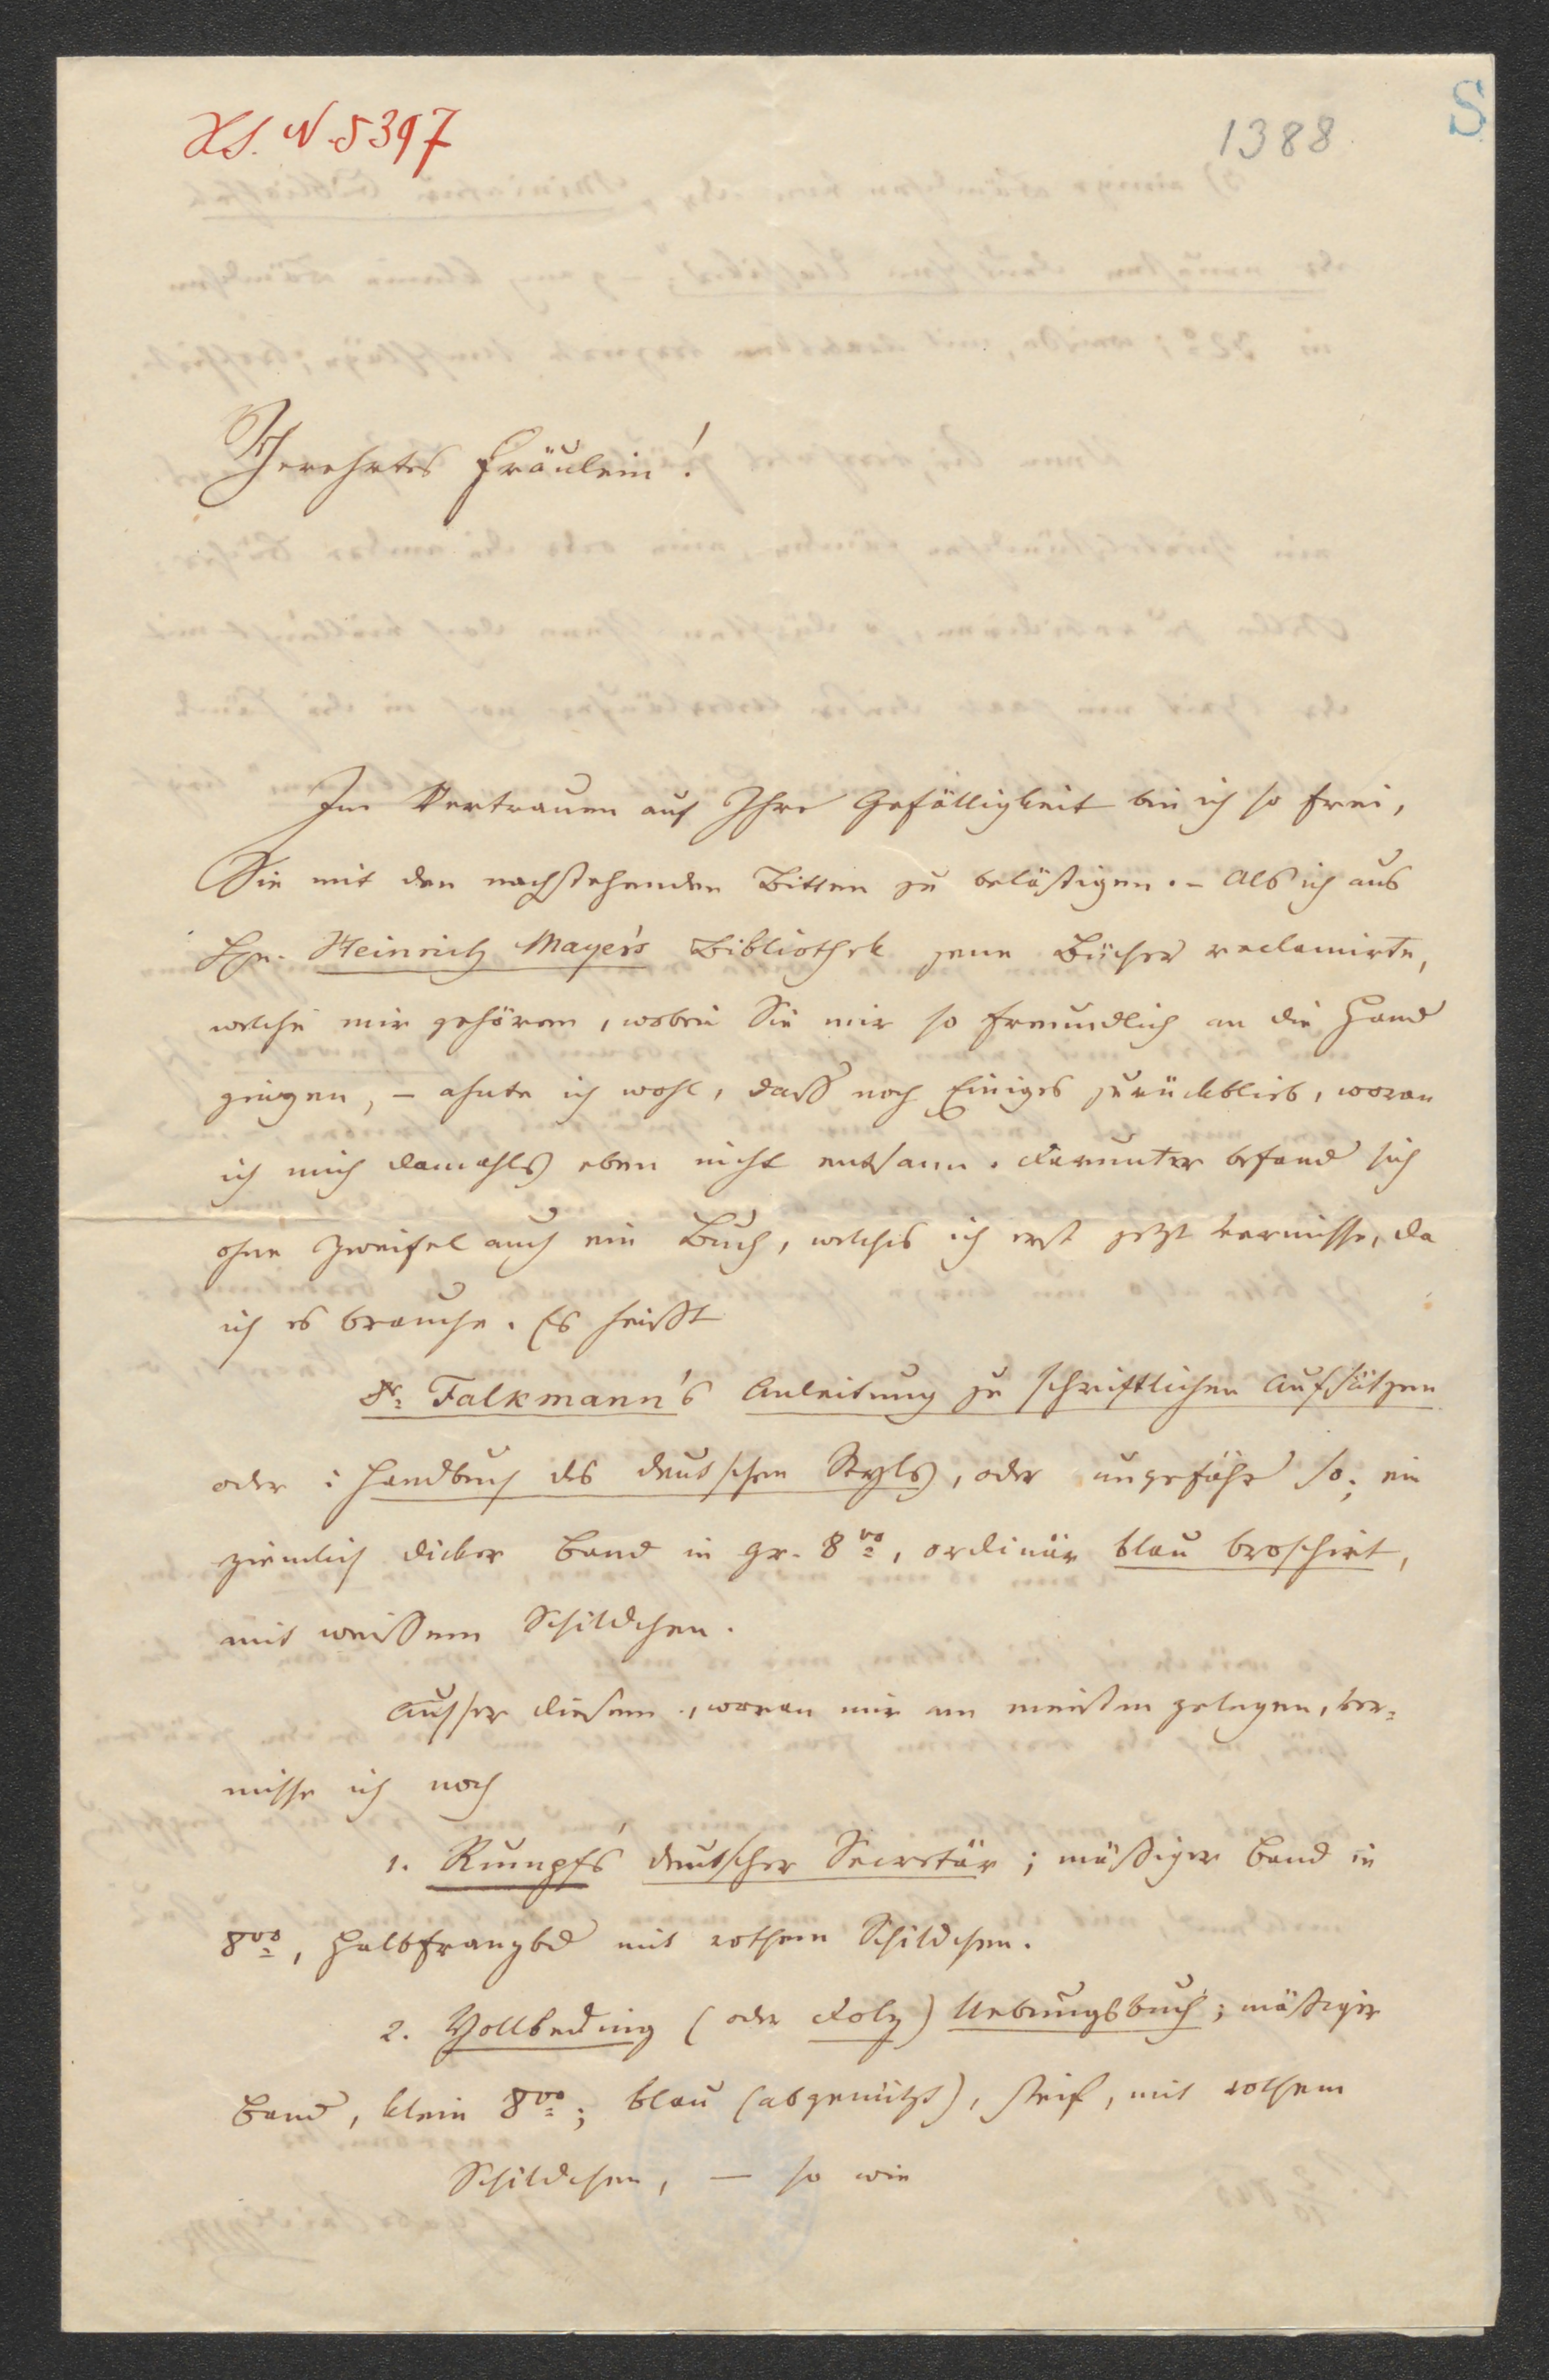 H.I.N. 5397
1388
S
Verehrtes Fräulein!
Im Vertrauen auf Ihre Gefälligkeit bin ich so frei,
Sie mit den nachstehenden Bitten zu belästigen. – Als ich aus
Hrn. Heinrich Mayer's Bibliothek jene Bücher reclamirte,
welche mir gehören, wobei Sie mir so freundlich an die Hand
gingen, – ahnte ich wohl, daß noch Einiges zurückblieb, woran
ich mich damahls eben nicht entsann. Darunter befand sich
ohne Zweifel auch ein Buch, welches ich erst jetzt vermisse, da
ich es brauche. Es heißt
Falkmann's Anleitung zu schriftlichen Aufsätzen
oder: Handbuch des deutschen Styls, oder ungefähr so; ein
ziemlich dicker Band in gr. 8vo, ordinär blau broschirt,
mit weißem Schildchen.
Ausser diesem, woran mir am meisten gelegen, ver=
misse ich noch
1. Rumpf's deutscher Secretär; mäßiger Band in
8vo, Halbfranzbd mit rothem Schildchen.
2. Vollbeding (oder Dolz) Uebungsbuch; mäßiger
Band, klein 8vo; blau (abgenützt), steif, mit rothem
Schildchen, — so wie